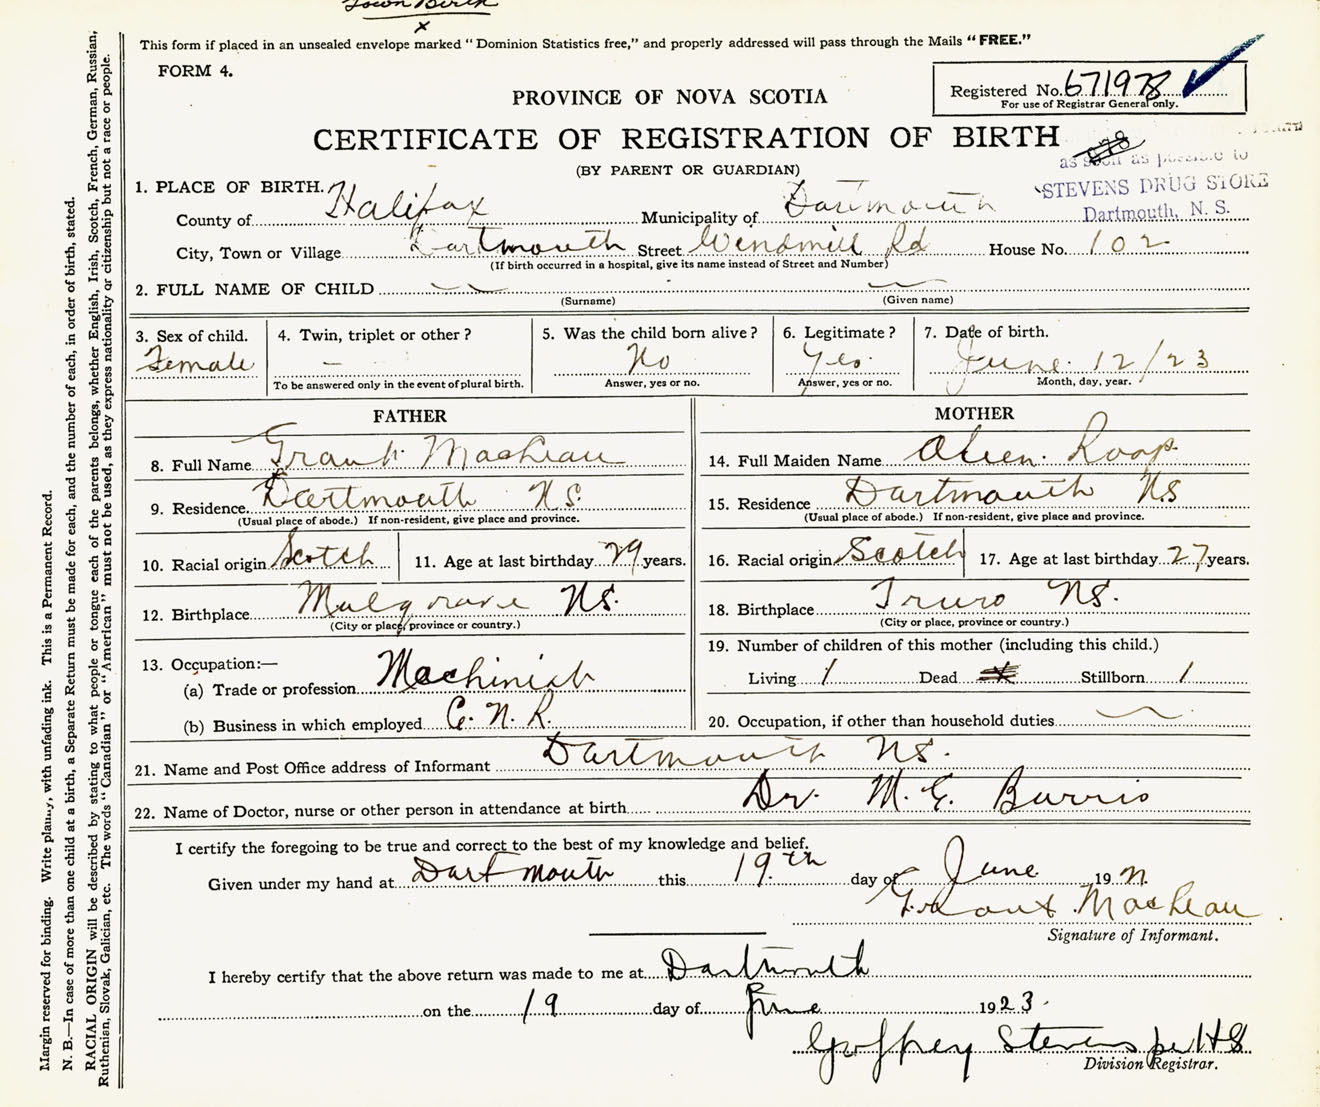 Town Birth
x
This form if placed in an unsealed envelope marked "Dominion Statistics free," and properly addressed will pass through the Mails "FREE."
FORM 4.
Registered No. 671978
For use of Registrar General only.
PROVINCE OF NOVA SCOTIA
CERTIFICATE OF REGISTRATION OF BIRTH
(BY PARENT OR GUARDIAN)
as soon as possible to
STEVENS DRUG STORE
Dartmouth, N. S.
1. PLACE OF BIRTH.
County of Halifax Municipality of Dartmouth
City, Town or Village Dartmouth Street Windmill Rd House No. 102
(If birth occurred in a hospital, give its name instead of Street and Number)
2. FULL NAME OF CHILD
(Surname) (Given name)
3. Sex of child. 4. Twin, triplet or other? 5. Was the child born alive? 6. Legitimate? 7. Date of birth.
Female — No Yes June 12/23
To be answered only in the event of plural birth. Answer, yes or no. Answer, yes or no. Month, day, year.
FATHER MOTHER
8. Full Name MacLean 14. Full Maiden Name Roop
9. Residence. Dartmouth NS. 15. Residence Dartmouth NS
(Usual place of abode.) If non-resident, give place and province. (Usual place of abode.) If non-resident, give place and province.
10. Racial origin Scotch 11. Age at last birthday 29 years. 16. Racial origin Scotch 17. Age at last birthday 27 years.
12. Birthplace Mulgrave NS. 18. Birthplace Truro NS.
(City or place, province or country.) (City or place, province or country.)
13. Occupation:— 19. Number of children of this mother (including this child.)
(a) Trade or profession Machinist Living 1 Dead Stillborn 1
(b) Business in which employed C.N.R. 20. Occupation, if other than household duties
21. Name and Post Office address of Informant Dartmouth NS.
22. Name of Doctor, nurse or other person in attendance at birth Dr. M. G. Burris
I certify the foregoing to be true and correct to the best of my knowledge and belief.
Given under my hand at Dartmouth this 19th day of June 19
MacLean
Signature of Informant.
I hereby certify that the above return was made to me at Dartmouth
on the 19 day of June 1923.
Geoffrey Stevens per HS
Division Registrar.
Margin reserved for binding. Write plainly, with unfading ink. This is a Permanent Record.
N. B.—In case of more than one child at a birth, a Separate Return must be made for each, and the number of each, in order of birth, stated.
RACIAL ORIGIN will be described by stating to what people or tongue each of the parents belongs, whether English, Irish, Scotch, French, German, Russian,
Ruthenian, Slovak, Galician, etc. The words "Canadian" or "American" must not be used, as they express nationality or citizenship but not a race or people.